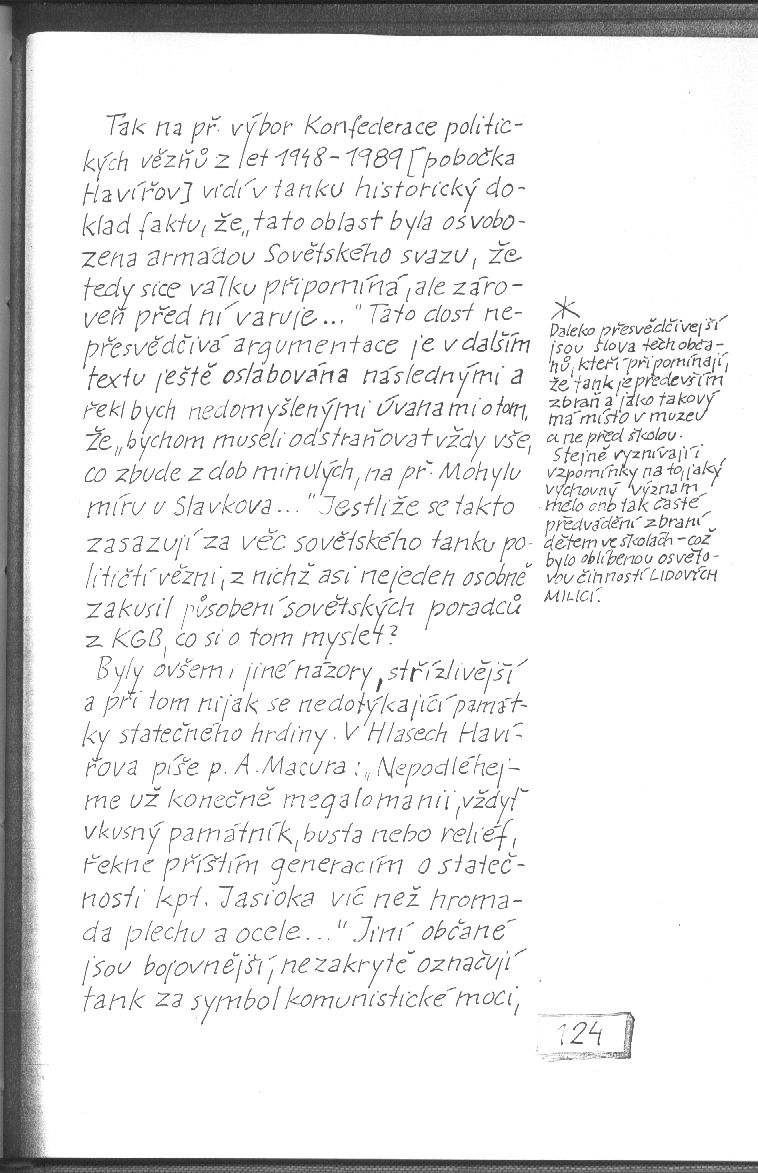 Tak na př. výbor Konfederace politic-
kých vězňů z let 1948-1989 [pobočka
Havířov] vidí v tanku historický do-
klad faktu, že „tato oblast byla osvobo-
zena armádou Sovětského svazu, že
tedy sice válku připomíná, ale záro-
veň před ní varuje..." Tato dost ne-
přesvědčivá argumentace je v dalším
textu ještě oslabována následnými a
řekl bych nedomyšlenými úvanami o tom,
že „bychom museli odstraňovat vždy vše,
co zbude z dob minulých, na př. Mohylu
míru u Slavkova..." Jestliže se takto
zasazují za věc sovětského tanku po-
litičtí vězni, z nichž asi nejeden osobně
zakusil působení sovětských poradců
z KGB, co si o tom myslet?
Byly ovšem i jiné názory, střízlivější
a při tom nijak se nedotýkající památ-
ky statečného hrdiny. V Hlasech Haví-
řova píše p. A. Macura: „Nepodléhej-
me už konečně megalomanii, vždyť
vkusný památník, busta nebo reliéf,
řekne příštím generacím o stateč-
nosti kpt. Jasioka víc než hroma-
da plechu a ocele..." Jiní občané
jsou bojovnější, nezakrytě označují
tank za symbol komunistické moci,
*
Daleko přesvědčivější
jsou slova těch obča-
nů, kteří připomínají,
že tank je především
zbraň a jako takový
má místo v muzeu
a ne před školou.
Stejně vyznívají i
vzpomínky na to, jaký
výchovný význam
mělo ono tak časté
předvádění zbraní
dětem ve školách - což
bylo oblíbenou osvěto-
vou činností LIDOVÝCH
MILICÍ.
124